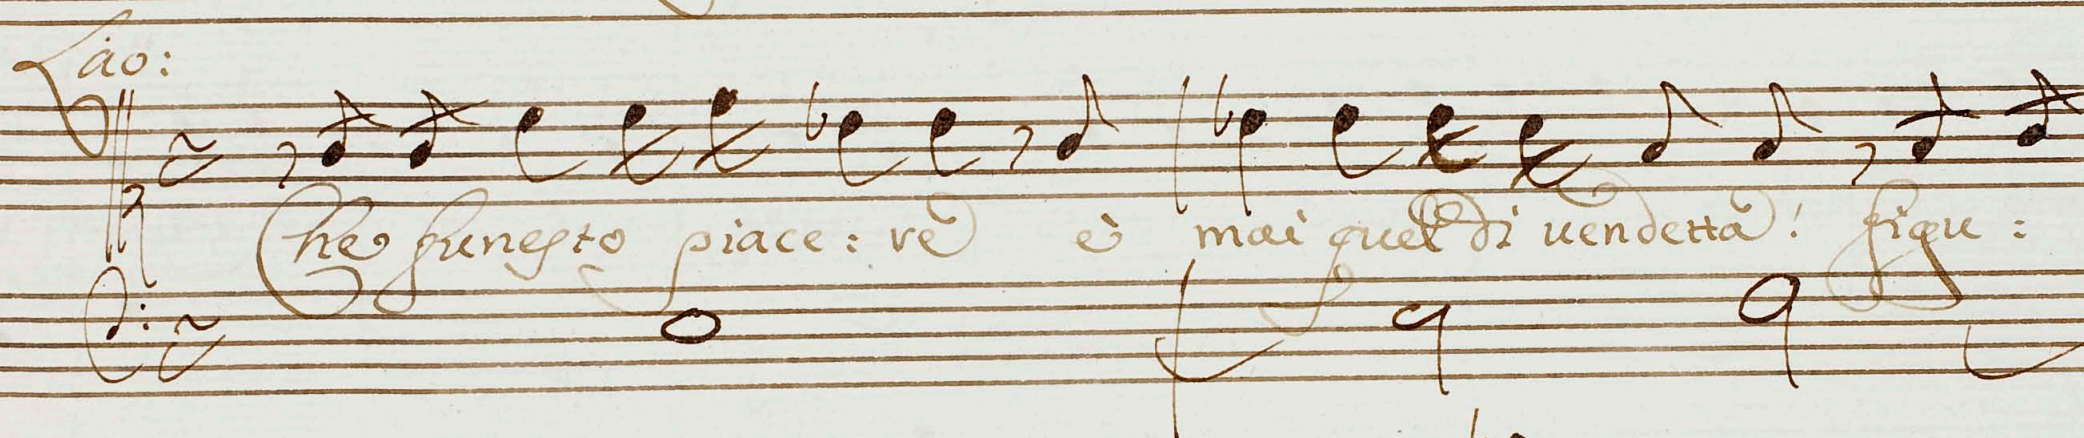 Lao:
Che funesto piace: re è mai quel di uendetta! figu: